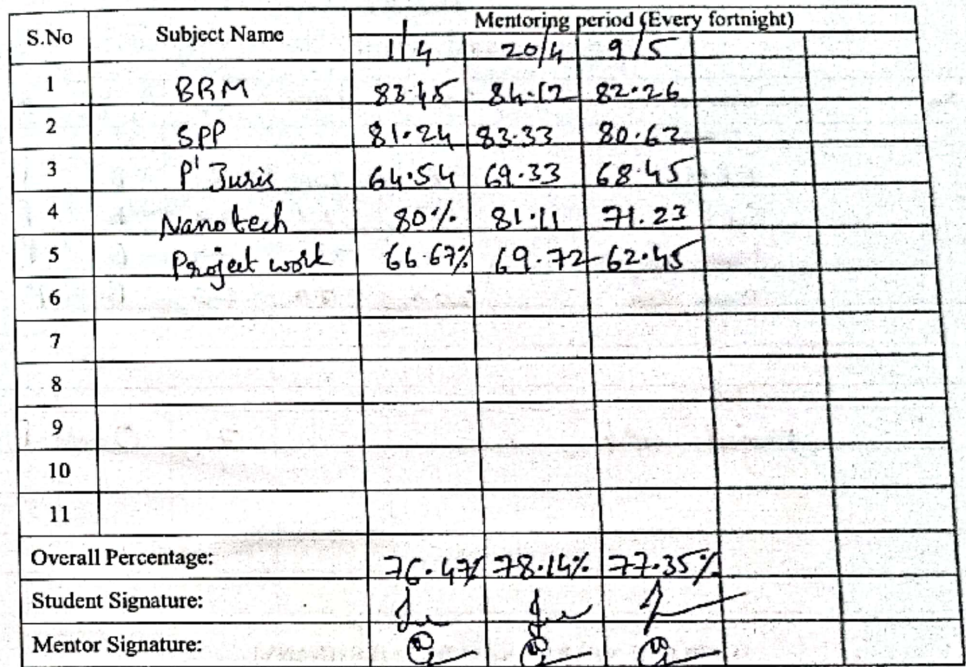 S.No Subject Name Mentoring period (Every fortnight)
1/4 20/4 9/5
1 BRM 83.45 84.12 82.26
2 SPP 81.24 83.33 80.62
3 P' Juris 64.54 69.33 68.45
4 Nanotech 80% 81.11 71.23
5 Project work 66.67% 69.72 62.45
6
7
8
9
10
11
Overall Percentage: 76.47% 78.14% 77.35%
Student Signature:
Mentor Signature: